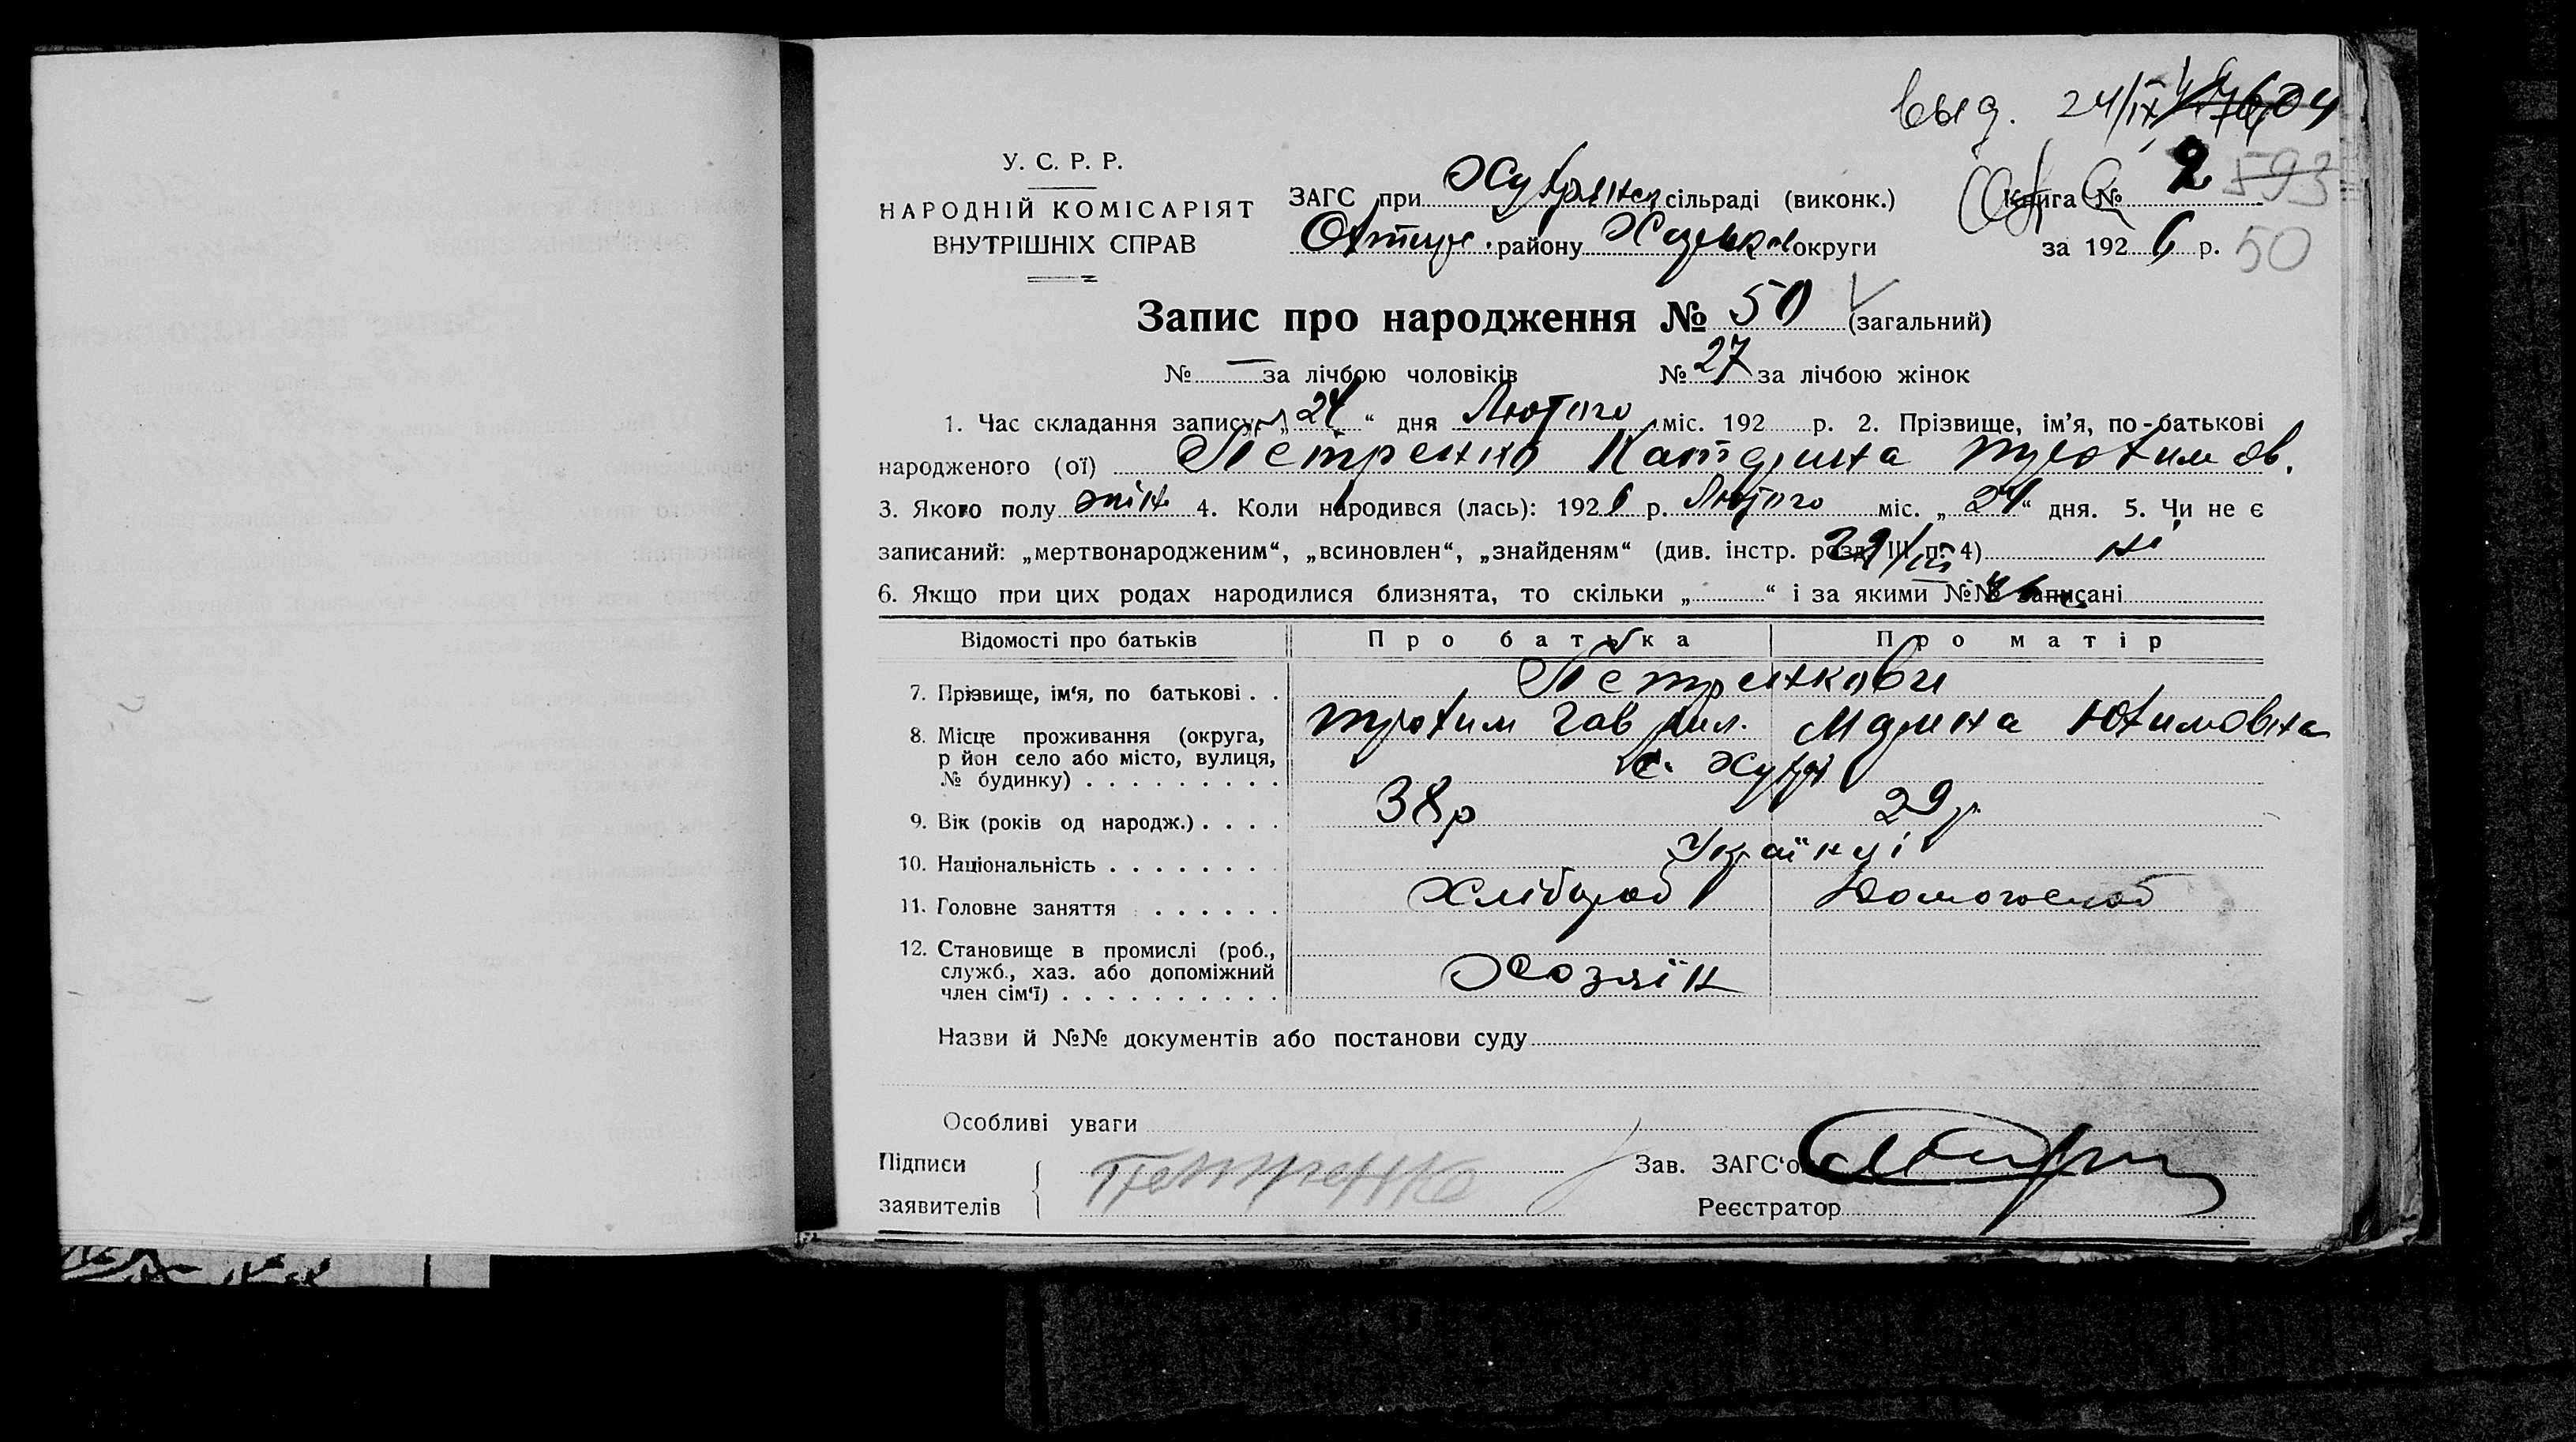 выд. 24/IX
У. С. Р. Р.
НАРОДНІЙ КОМІСАРІЯТ
ВНУТРІШНІХ СПРАВ
ЗАГС при сільраді (виконк.)
Охтир. району Харьков округи
Книга № 2 593
за 1926 р. 50
Запис про народження № 50 (загальний)
№ — за лічбою чоловіків № 27 за лічбою жінок
1. Час складання запису „24“ дня Лютого міс. 192 р. 2. Прізвище, ім'я, по-батькові
народженого (ої) Петренко Катерина Трохимов.
3. Якого полу жін 4. Коли народився (лась): 1926 р. Лютого міс. „21“ дня. 5. Чи не є
записаний: „мертвонародженим“, „всиновлен“, „знайденям“ (див. інстр. розд. III п. 4) ні
6. Якщо при цих родах народилися близнята, то скільки „ “ і за якими №№ записані
Відомості про батьків Про батька Про матір
7. Прізвище, ім'я, по батькові . . Петренкови
Трохим Гаврил. Марина Юхимовна
8. Місце проживання (округа,
р йон село або місто, вулиця,
№ будинку) . . . . . . . . . с. Хухря
9. Вік (років од народж.) . . . . 38 р 29 р
10. Національність . . . . . . . . Українці
11. Головне заняття . . . . . . Хлібороб
12. Становище в промислі (роб.,
служб., хаз. або допоміжний
член сім'ї) . . . . . . . . . . Хозяїн
Назви й №№ документів або постанови суду
Особливі уваги
Підписи
заявителів
Петренко
Зав. ЗАГС'о
Реєстратор